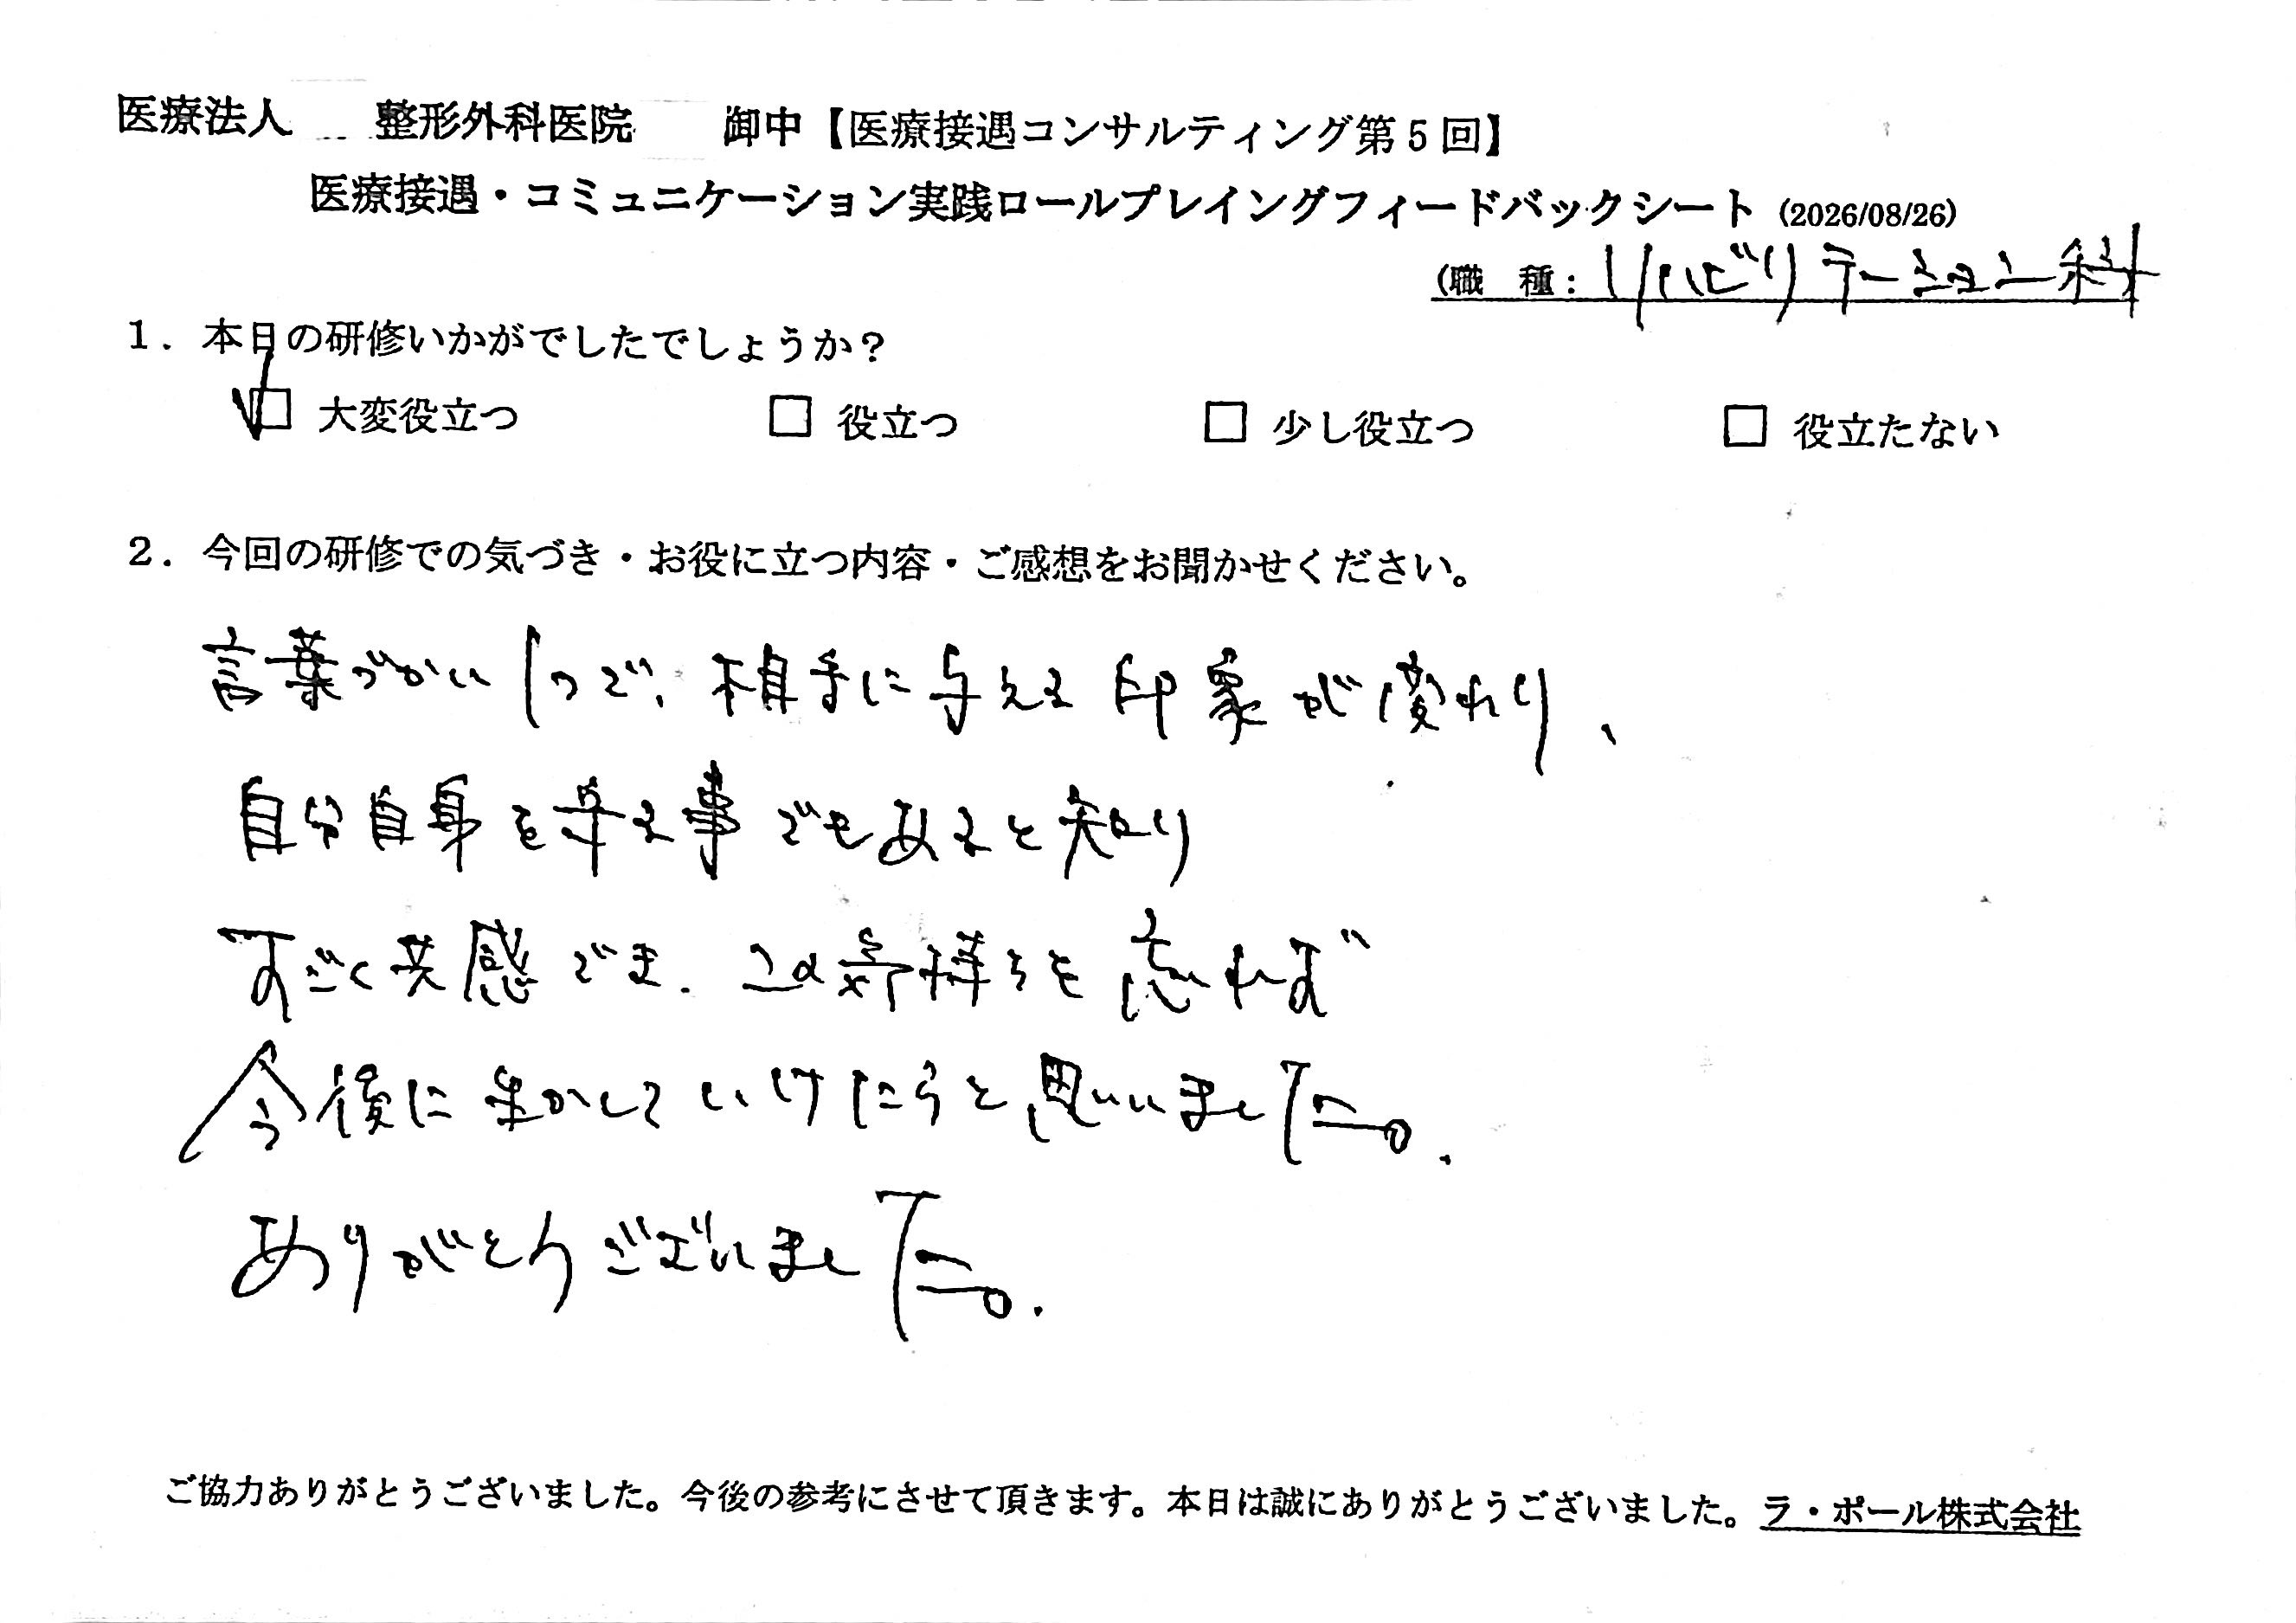 医療法人 整形外科医院 御中【医療接遇コンサルティング第5回】
医療接遇・コミュニケーション実践ロールプレイングフィードバックシート (2026/08/26)
(職 種：リハビリテーション科
1．本日の研修いかがでしたでしょうか？
☑ 大変役立つ □ 役立つ □ 少し役立つ □ 役立たない
2．今回の研修での気づき・お役に立つ内容・ご感想をお聞かせください。
言葉づかい1つで、相手に与える印象が変わり、
自分自身を守る事でもあると知り
すごく共感でき、この気持ちを忘れず
今後に生かしていけたらと思いいました。
ありがとうございました。
ご協力ありがとうございました。今後の参考にさせて頂きます。本日は誠にありがとうございました。ラ・ポール株式会社